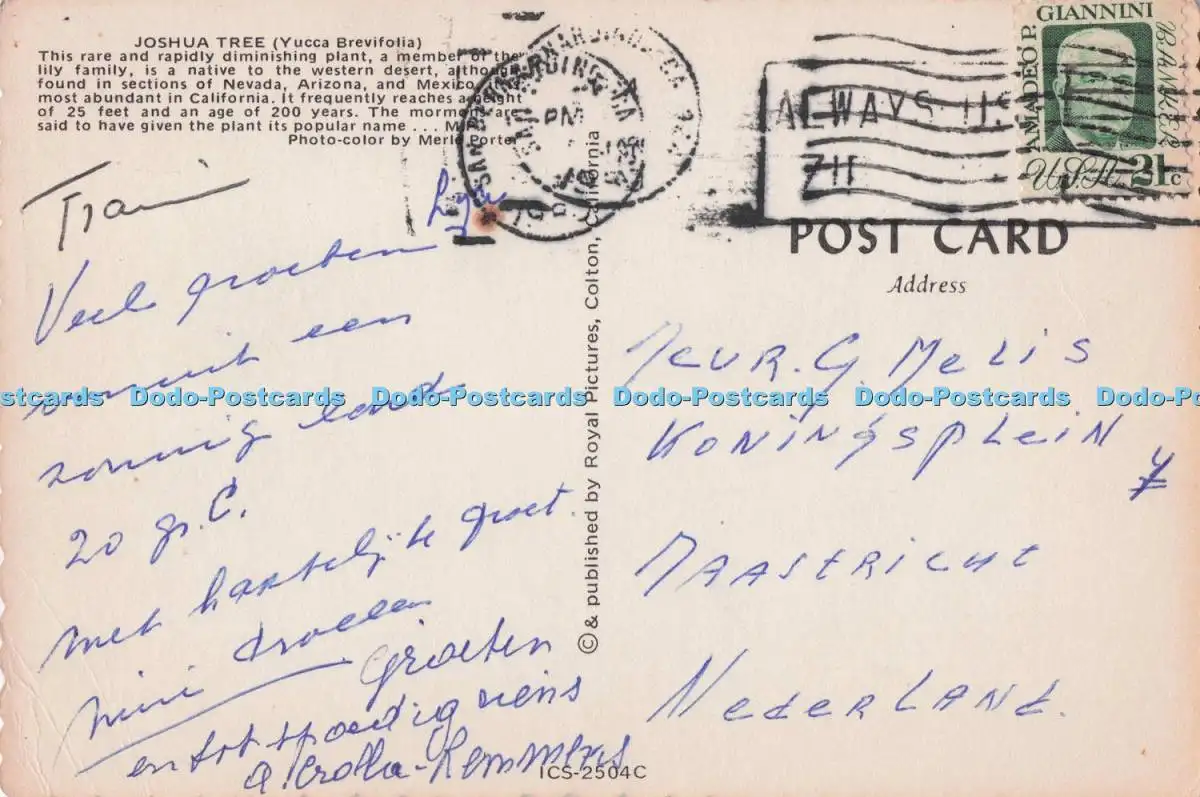 JOSHUA TREE (Yucca Brevifolia)
This rare and rapidly diminishing plant, a member of the
lily family, is a native to the western desert, although
found in sections of Nevada, Arizona, and Mexico,
most abundant in California. It frequently reaches a height
of 25 feet and an age of 200 years. The mormons are
said to have given the plant its popular name . . . M
Photo-color by Merle Porter
SAN BERNARDINO, CA
PM
ALWAYS US
ZII
AMADEO P. GIANNINI
BANKER
U.S.A. 21c
POST CARD
Address
Veel groeten
vanuit een
zonnig land
20 gr. C.
met hartelijke groet.
groeten
en tot spoedig ziens
a. Crolla-Lemmens
© & published by Royal Pictures, Colton, California
Meur. G. Melis
Koningsplein
Maastricht
Nederland.
ICS-2504C
Dodo-Postcards Dodo-Postcards Dodo-Postcards Dodo-Postcards